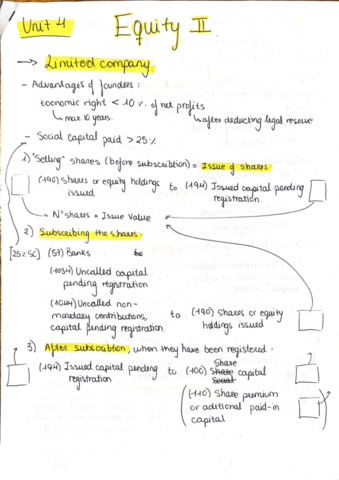 Unit 4
Equity II
→ Limited company
- Advantages of founders:
economic right < 10 % of net profits
↳ max. 10 years.
↳ after deducting legal reserve
- Social capital paid > 25 %
1) "Selling" shares (before subscribtion) = Issue of shares
(190) Shares or equity holdings issued
to (194) Issued capital pending registration.
→ Nº shares × Issue Value
2) Subscribing the shares:
[25% SC] (57) Banks to
(1034) Uncalled capital
pending registration
(1044) Uncalled non-
monetary contributions,
capital pending registration
to (190) Shares or equity
holdings issued
3) After subscribtion, when they have been registered.
(194) Issued capital pending registration
to (100) Share capital
Social
(110) Share premium
or aditional paid-in
capital